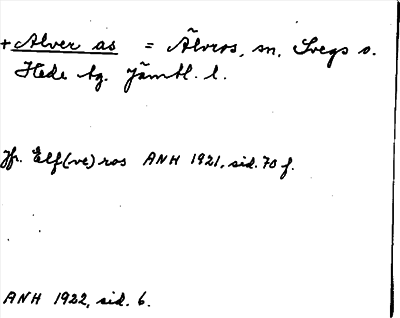 + Alver as = Älvros, sn, Svegs o.
Hede tg. Jämtl. l.
Jfr. Elf(ve)ros ANH 1921, sid. 70 f.
ANH 1922, sid. 6.